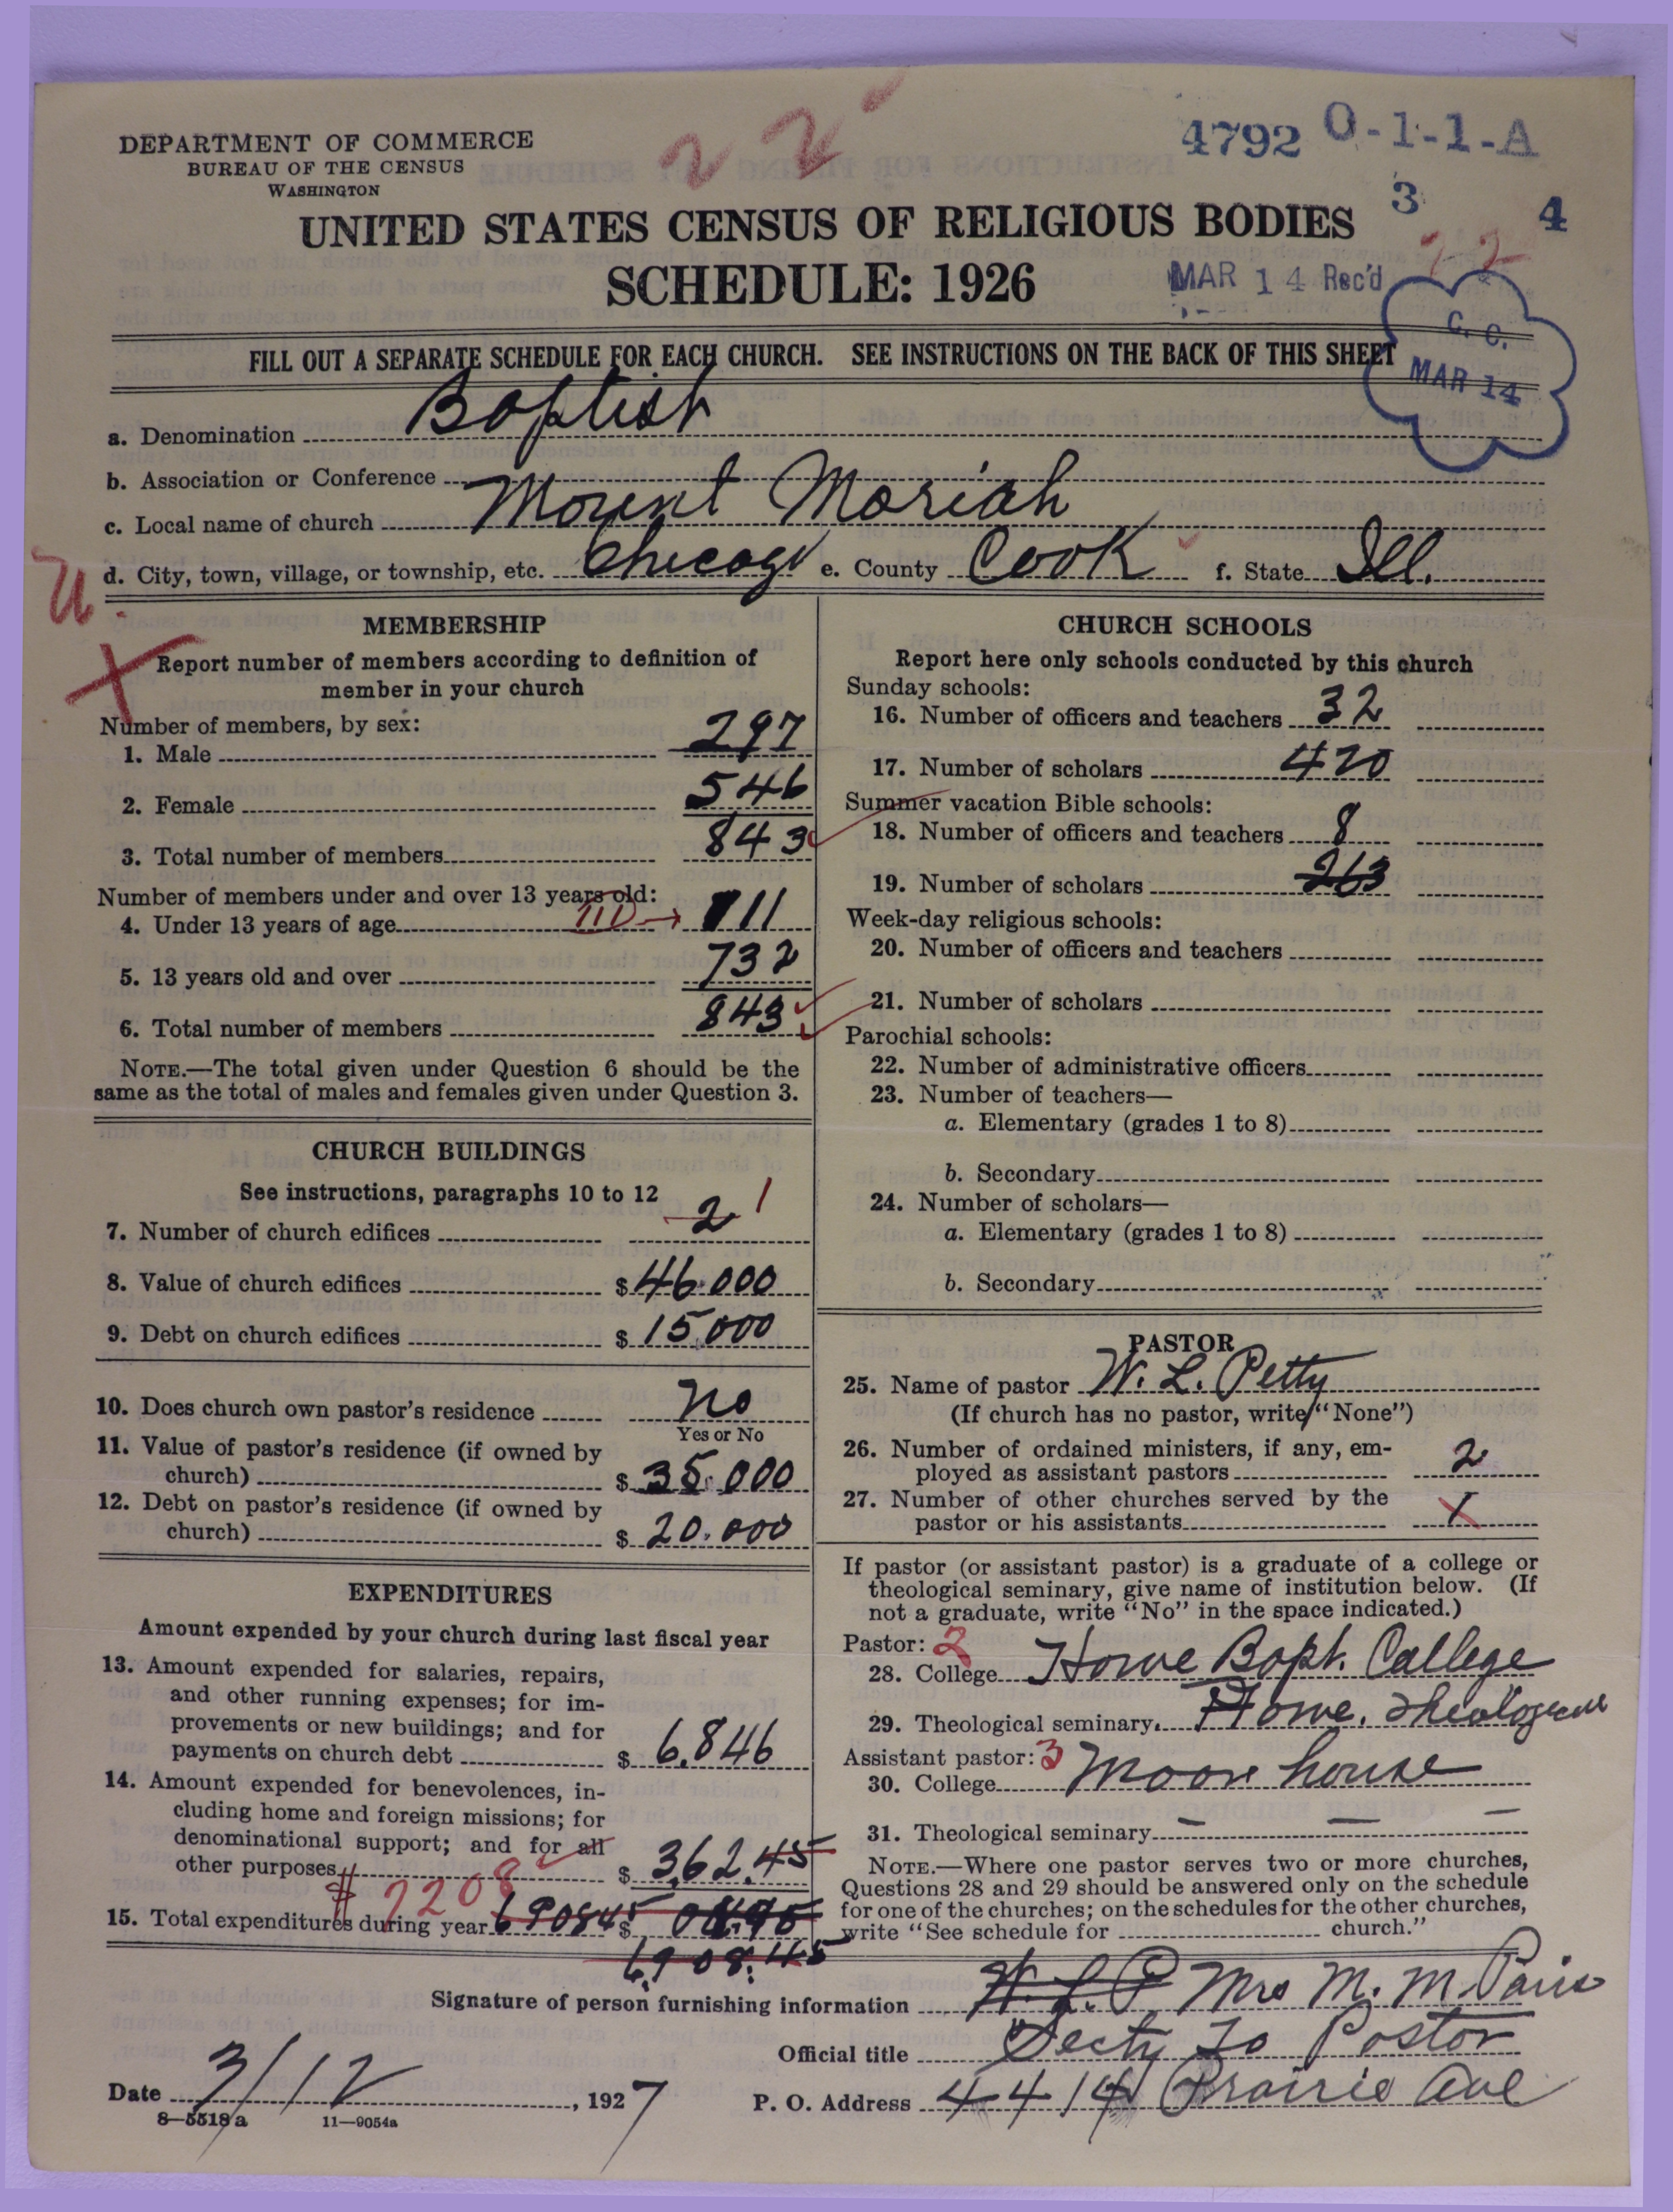 22
4792 O-1-1-A
DEPARTMENT OF COMMERCE
BUREAU OF THE CENSUS
WASHINGTON
3 4
UNITED STATES CENSUS OF RELIGIOUS BODIES
22
SCHEDULE: 1926
MAR 14 Rec'd
C. C.
MAR 14
FILL OUT A SEPARATE SCHEDULE FOR EACH CHURCH. SEE INSTRUCTIONS ON THE BACK OF THIS SHEET
a. Denomination Baptist
b. Association or Conference
c. Local name of church Mount Moriah
d. City, town, village, or township, etc. Chicago e. County Cook f. State Ill.
MEMBERSHIP
Report number of members according to definition of
member in your church
Number of members, by sex:
1. Male 297
2. Female 546
3. Total number of members 843
Number of members under and over 13 years old:
4. Under 13 years of age 111 → 111
5. 13 years old and over 732
6. Total number of members 843
NOTE.—The total given under Question 6 should be the
same as the total of males and females given under Question 3.
CHURCH BUILDINGS
See instructions, paragraphs 10 to 12
7. Number of church edifices 2 1
8. Value of church edifices $ 46.000
9. Debt on church edifices $ 15,000
10. Does church own pastor's residence No
Yes or No
11. Value of pastor's residence (if owned by
church) $ 35.000
12. Debt on pastor's residence (if owned by
church) $ 20.000
EXPENDITURES
Amount expended by your church during last fiscal year
13. Amount expended for salaries, repairs,
and other running expenses; for im-
provements or new buildings; and for
payments on church debt $ 6,846
14. Amount expended for benevolences, in-
cluding home and foreign missions; for
denominational support; and for all
other purposes $ 362.45
$ 7208
15. Total expenditures during year 690845 $
6,908.45
CHURCH SCHOOLS
Report here only schools conducted by this church
Sunday schools:
16. Number of officers and teachers 32
17. Number of scholars 420
Summer vacation Bible schools:
18. Number of officers and teachers 8
19. Number of scholars 263
Week-day religious schools:
20. Number of officers and teachers
21. Number of scholars
Parochial schools:
22. Number of administrative officers
23. Number of teachers—
a. Elementary (grades 1 to 8)
b. Secondary
24. Number of scholars—
a. Elementary (grades 1 to 8)
b. Secondary
PASTOR
25. Name of pastor W. L. Petty
(If church has no pastor, write "None")
26. Number of ordained ministers, if any, em-
ployed as assistant pastors 2
27. Number of other churches served by the
pastor or his assistants 1
If pastor (or assistant pastor) is a graduate of a college or
theological seminary, give name of institution below. (If
not a graduate, write "No" in the space indicated.)
Pastor: 2
28. College Howe Bapt. College
29. Theological seminary Howe. Theological
Assistant pastor: 3
30. College Moore house
31. Theological seminary — — —
NOTE.—Where one pastor serves two or more churches,
Questions 28 and 29 should be answered only on the schedule
for one of the churches; on the schedules for the other churches,
write "See schedule for church."
Signature of person furnishing information W. L. P Mrs M. M. Paris
Official title Secty to Pastor
Date 3/12, 1927 P. O. Address 4414 Prairie Ave
8—5518a 11—9054a